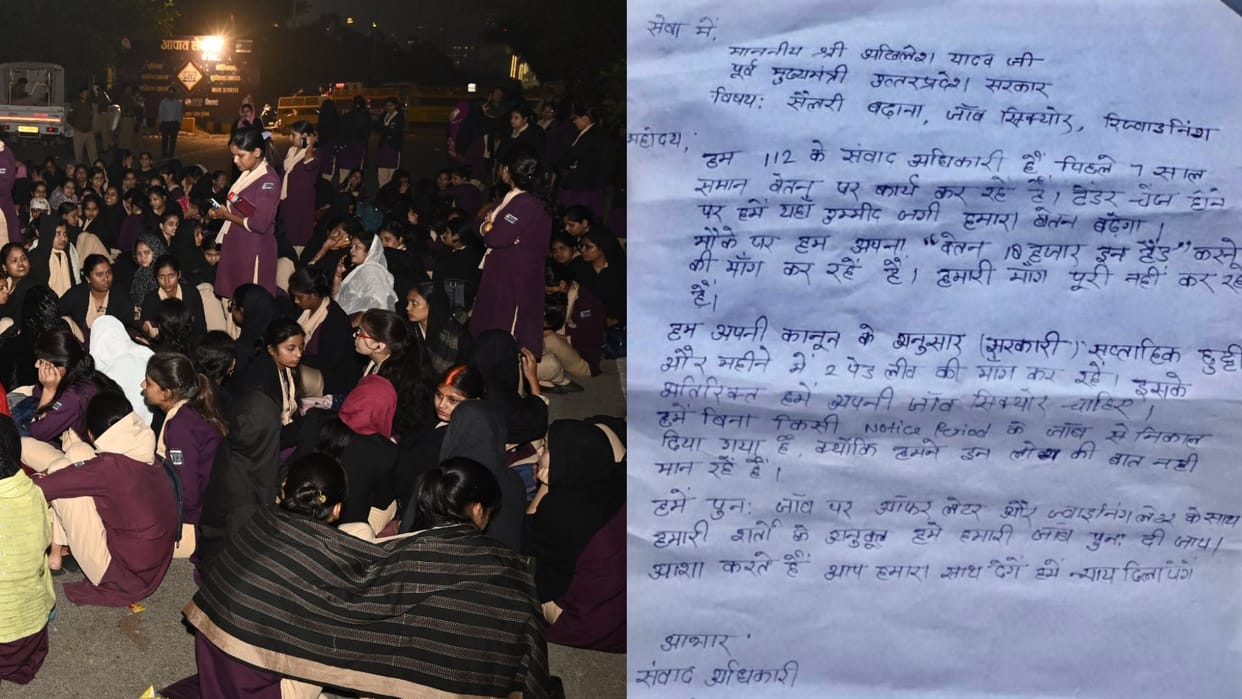 आपात से
112
सेवा में,
माननीय श्री अखिलेश यादव जी
पूर्व मुख्यमंत्री उत्तरप्रदेश सरकार
विषय: सैलरी बढ़ाना, जॉब सिक्योर, रिज्वाइनिंग
महोदय,
हम 112 के संवाद अधिकारी हैं, पिछले 7 साल
समान वेतन पर कार्य कर रहे हैं। टेंडर चेंज होने
पर हमें यहाँ उम्मीद जगी हमारा वेतन बढ़ेगा।
मौके पर हम अपना "वेतन 18 हजार इन हैंड" करने
की माँग कर रहे हैं। हमारी मांग पूरी नहीं कर रहे
हैं।
हम अपनी कानून के अनुसार (सरकारी) सप्ताहिक छुट्टी
और महीने में 2 पेड लीव की मांग कर रहें। इसके
अतिरिक्त हमें अपनी जॉब सिक्योर चाहिए।
हमें बिना किसी Notice Period के जॉब से निकाल
दिया गया है, क्योंकि हमने इन लोगों की बात नहीं
मान रहें हैं।
हमें पुन: जॉब पर ऑफर लेटर और ज्वाइनिंग लेटर के साथ
हमारी शर्तो के अनुकूल हमे हमारी जॉब पुन: दी जाय।
आशा करते हैं आप हमारा साथ देगें हमें न्याय दिलायेंगे
आभार
संवाद अधिकारी